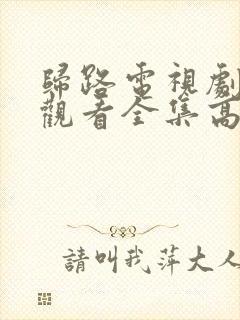 歸路電視劇
觀看全集高
請叫我萍大人